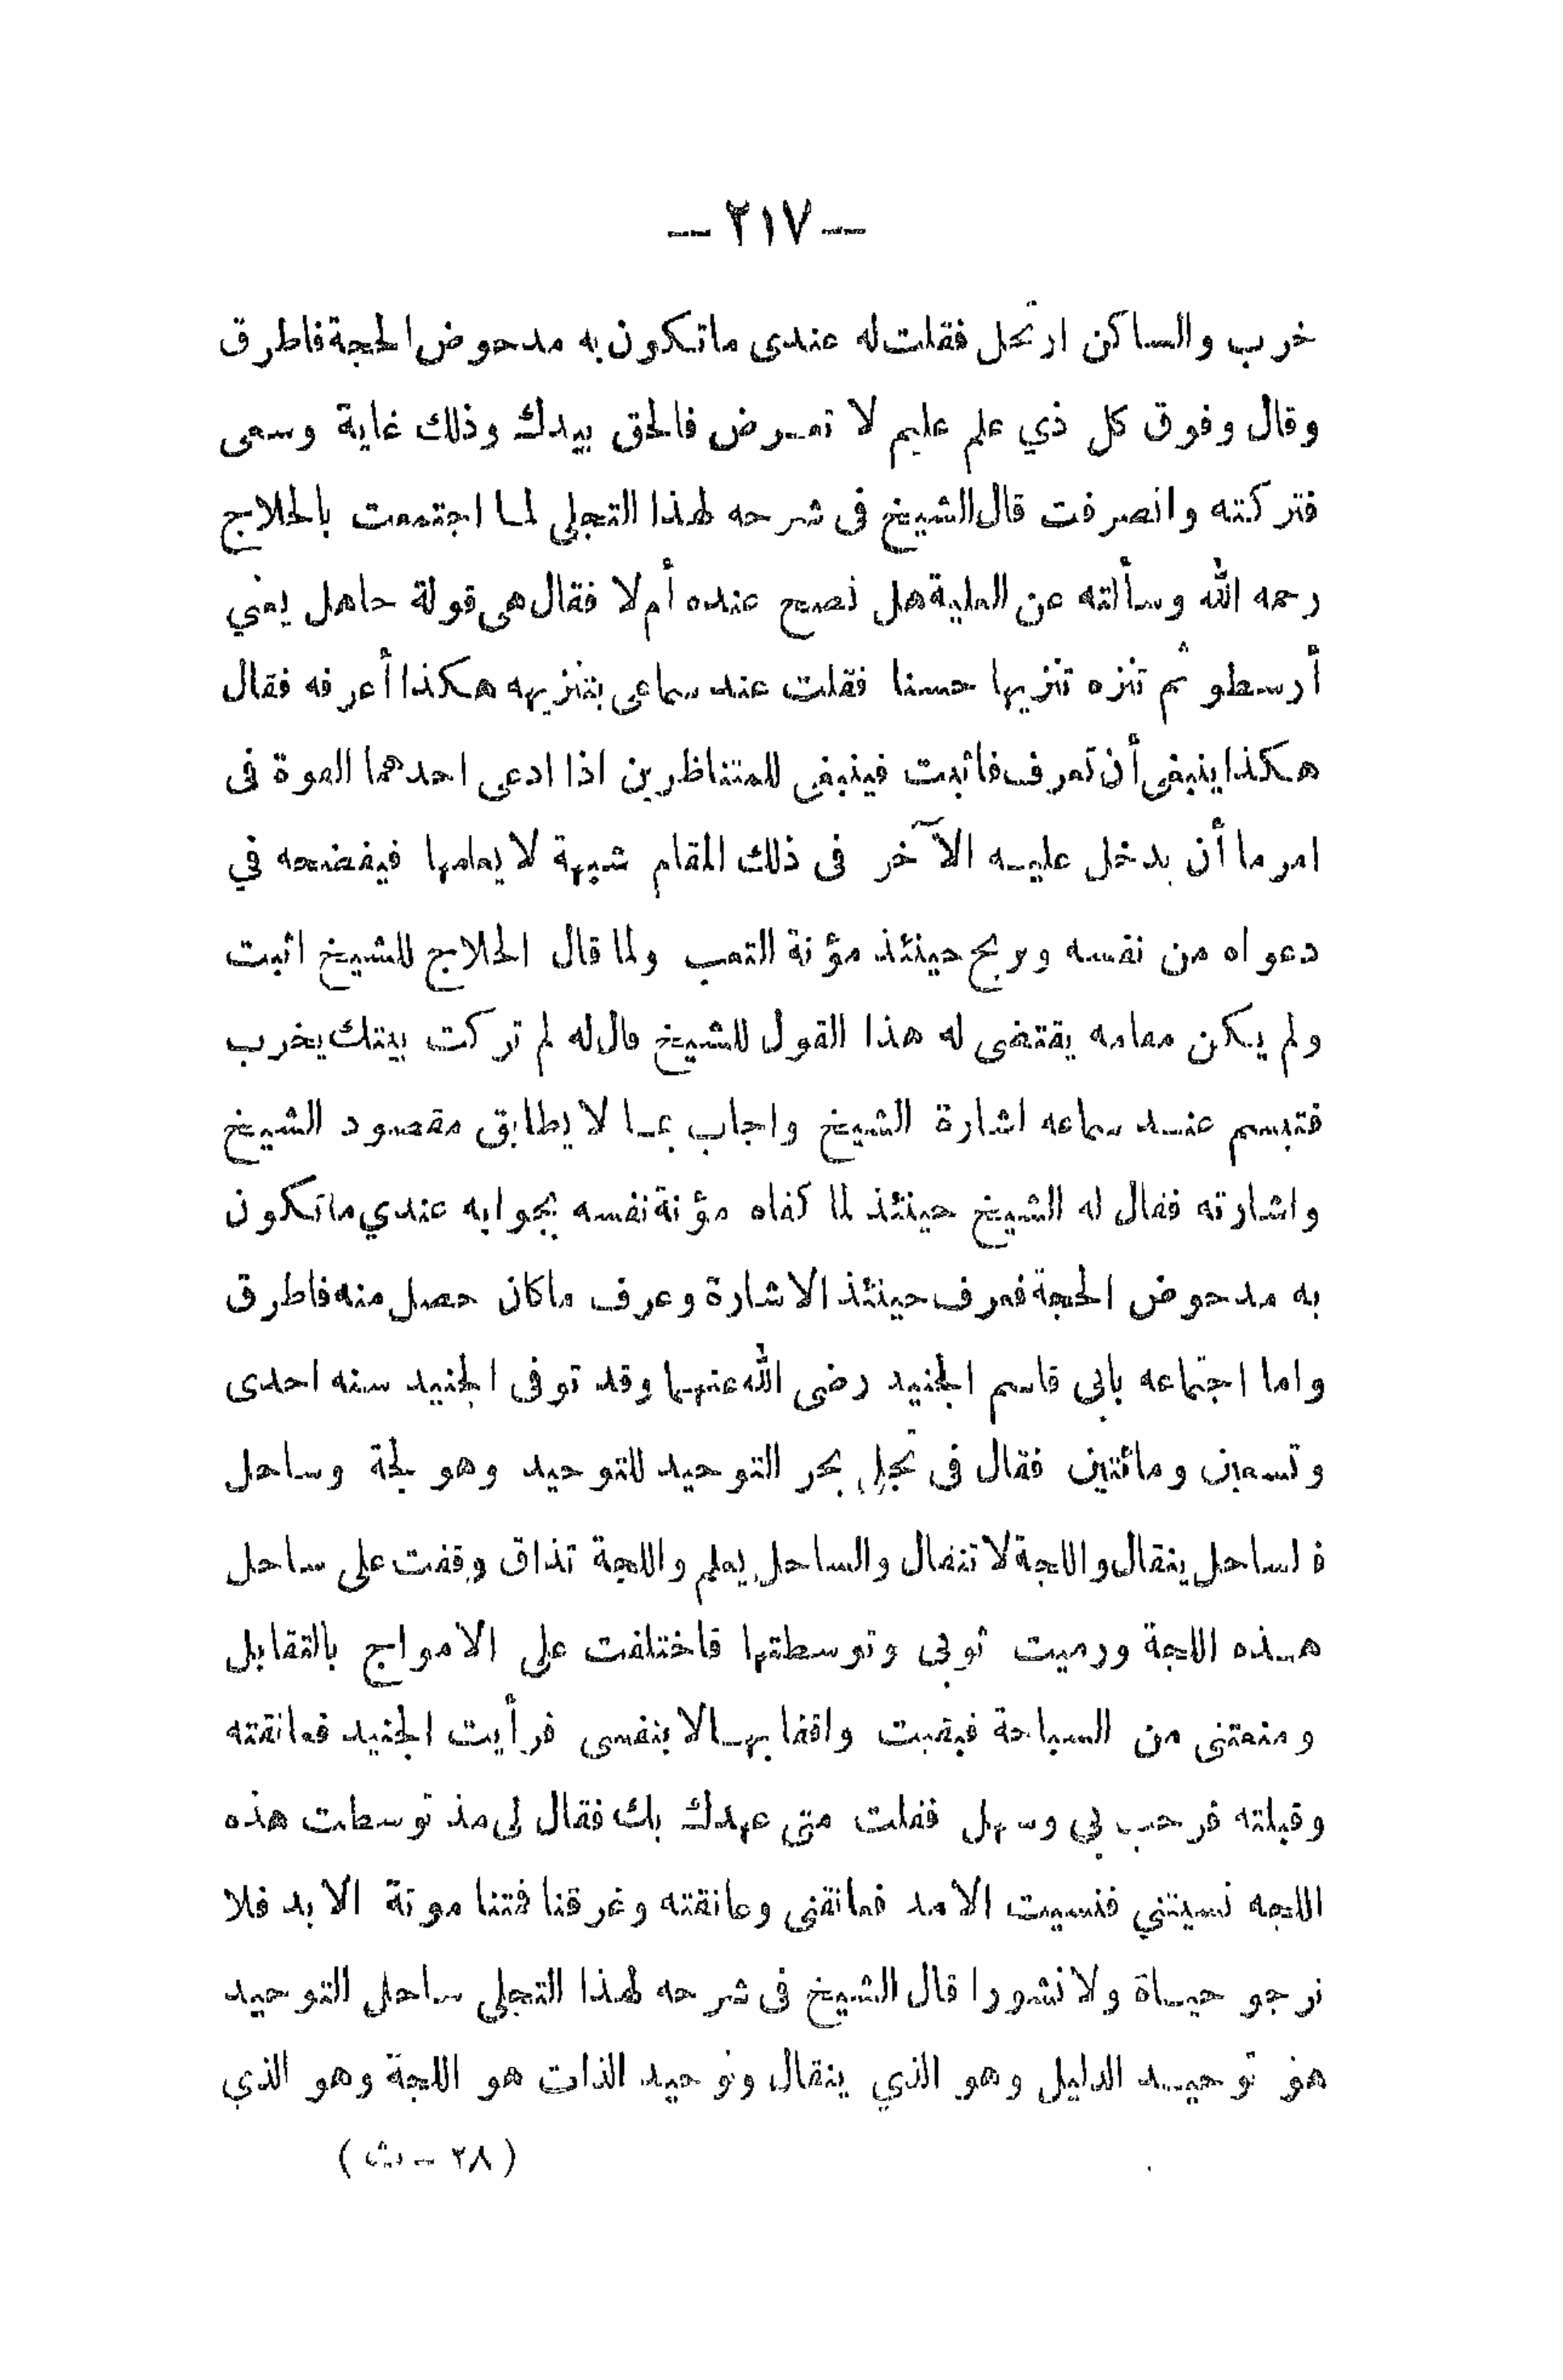 — ٢١٧ —
خرب والساكن ارتحل فقلت له عندى ماتكون به مدحوض الحجة فاطرق
وقال وفوق كل ذي علم عليم لا تعرض فالحق بيدك وذلك غاية وسعى
فتركته وانصرفت قال الشيخ فى شرحه لهذا التجلى لما اجتمعت بالحلاج
رحمه الله وسألته عن العلية هل تصح عنده أم لا فقال هى قولة جاهل يعني
أرسطو ثم تنزه تنزيها حسنا فقلت عند سماعى بتنزيهه هكذا أعرفه فقال
هكذا ينبغى أن تعرف فاثبت فينبغى للمتناظرين اذا ادعى احدهما القوة فى
امر ما أن يدخل عليه الآخر فى ذلك المقام شبهة لا يعلمها فيفضحه في
دعواه من نفسه ويربح حينئذ مؤنة التعب ولما قال الحلاج للشيخ اثبت
ولم يكن مقامه يقتضى له هذا القول للشيخ قال له لم تركت بيتك يخرب
فتبسم عند سماعه اشارة الشيخ واجاب بما لا يطابق مقصود الشيخ
واشارته فقال له الشيخ حينئذ لما كفاه مؤنة نفسه بجوابه عندي ماتكون
به مدحوض الحجة فعرف حينئذ الاشارة وعرف ماكان حصل منه فاطرق
واما اجتماعه بابى قاسم الجنيد رضى الله عنهما وقد توفى الجنيد سنه احدى
وتسعين ومائتين فقال فى تجلى بحر التوحيد للتوحيد وهو لجة وساحل
فالساحل ينقال واللجة لا تنقال والساحل يعلم واللجة تذاق وقفت على ساحل
هذه اللجة ورميت ثوبى وتوسطتها فاختلفت على الامواج بالتقابل
ومنعتنى من السباحة فبقيت واقفا بها لا بنفسى فرأيت الجنيد فعانقته
وقبلته فرحب بي وسهل فقلت متى عهدك بك فقال لى مذ توسطت هذه
اللجه نسيتني فنسيت الامد فعانقنى وعانقته وغرقنا فمتنا موتة الابد فلا
نرجو حياة ولا نشورا قال الشيخ فى شرحه لهذا التجلى ساحل التوحيد
هو توحيد الدليل وهو الذي ينقال وتوحيد الذات هو اللجة وهو الذي
( ٢٨ — ث )